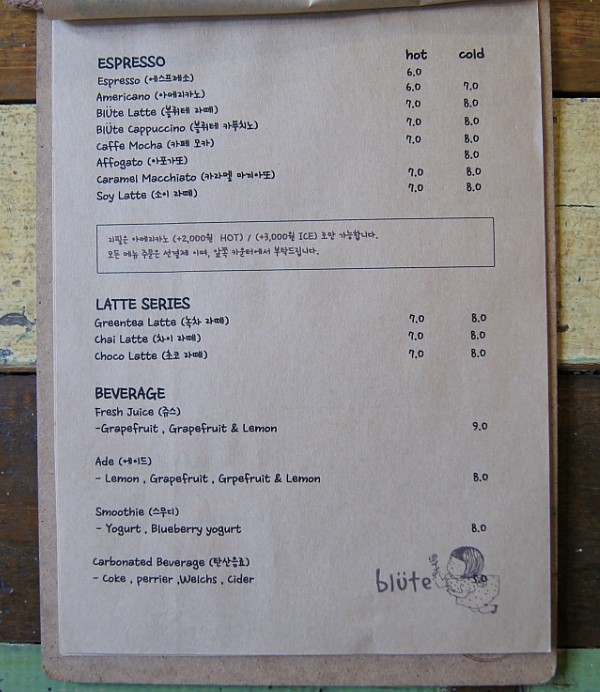 ESPRESSO hot cold
Espresso (에스프레소) 6.0
Americano (아메리카노) 6.0 7.0
BlÜte Latte (블뤼테 라떼) 7.0 8.0
BlÜte Cappuccino (블뤼테 카푸치노) 7.0 8.0
Caffe Mocha (카페 모카) 7.0 8.0
Affogato (아포가또) 8.0
Caramel Macchiato (카라멜 마끼아또) 7.0 8.0
Soy Latte (소이 라떼) 7.0 8.0
리필은 아메리카노 (+2,000원 HOT) / (+3,000원 ICE) 로만 가능합니다.
모든 메뉴 주문은 선결제 이며, 앞쪽 카운터에서 부탁드립니다.
LATTE SERIES
Greentea Latte (녹차 라떼) 7.0 8.0
Chai Latte (차이 라떼) 7.0 8.0
Choco Latte (초코 라떼) 7.0 8.0
BEVERAGE
Fresh Juice (쥬스)
-Grapefruit , Grapefruit & Lemon 9.0
Ade (에이드)
- Lemon , Grapefruit , Grpefruit & Lemon 8.0
Smoothie (스무디)
- Yogurt , Blueberry yogurt 8.0
Carbonated Beverage (탄산음료)
- Coke , perrier ,Welchs , Cider 5.0
blüte